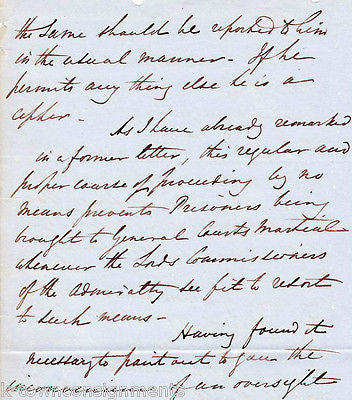 the same should be reported to him
in the usual manner - If he
permits any thing else he is a
cypher -
As I have already remarked
in a former letter, this regular and
proper course of proceeding by no
means prevents Prisoners being
brought to General Courts Martial
whenever the Lords Commissioners
of the Admiralty see fit to resort
to such means -
Having found it
necessary to point out to you the
inconvenience of an oversight
k-townconsignments